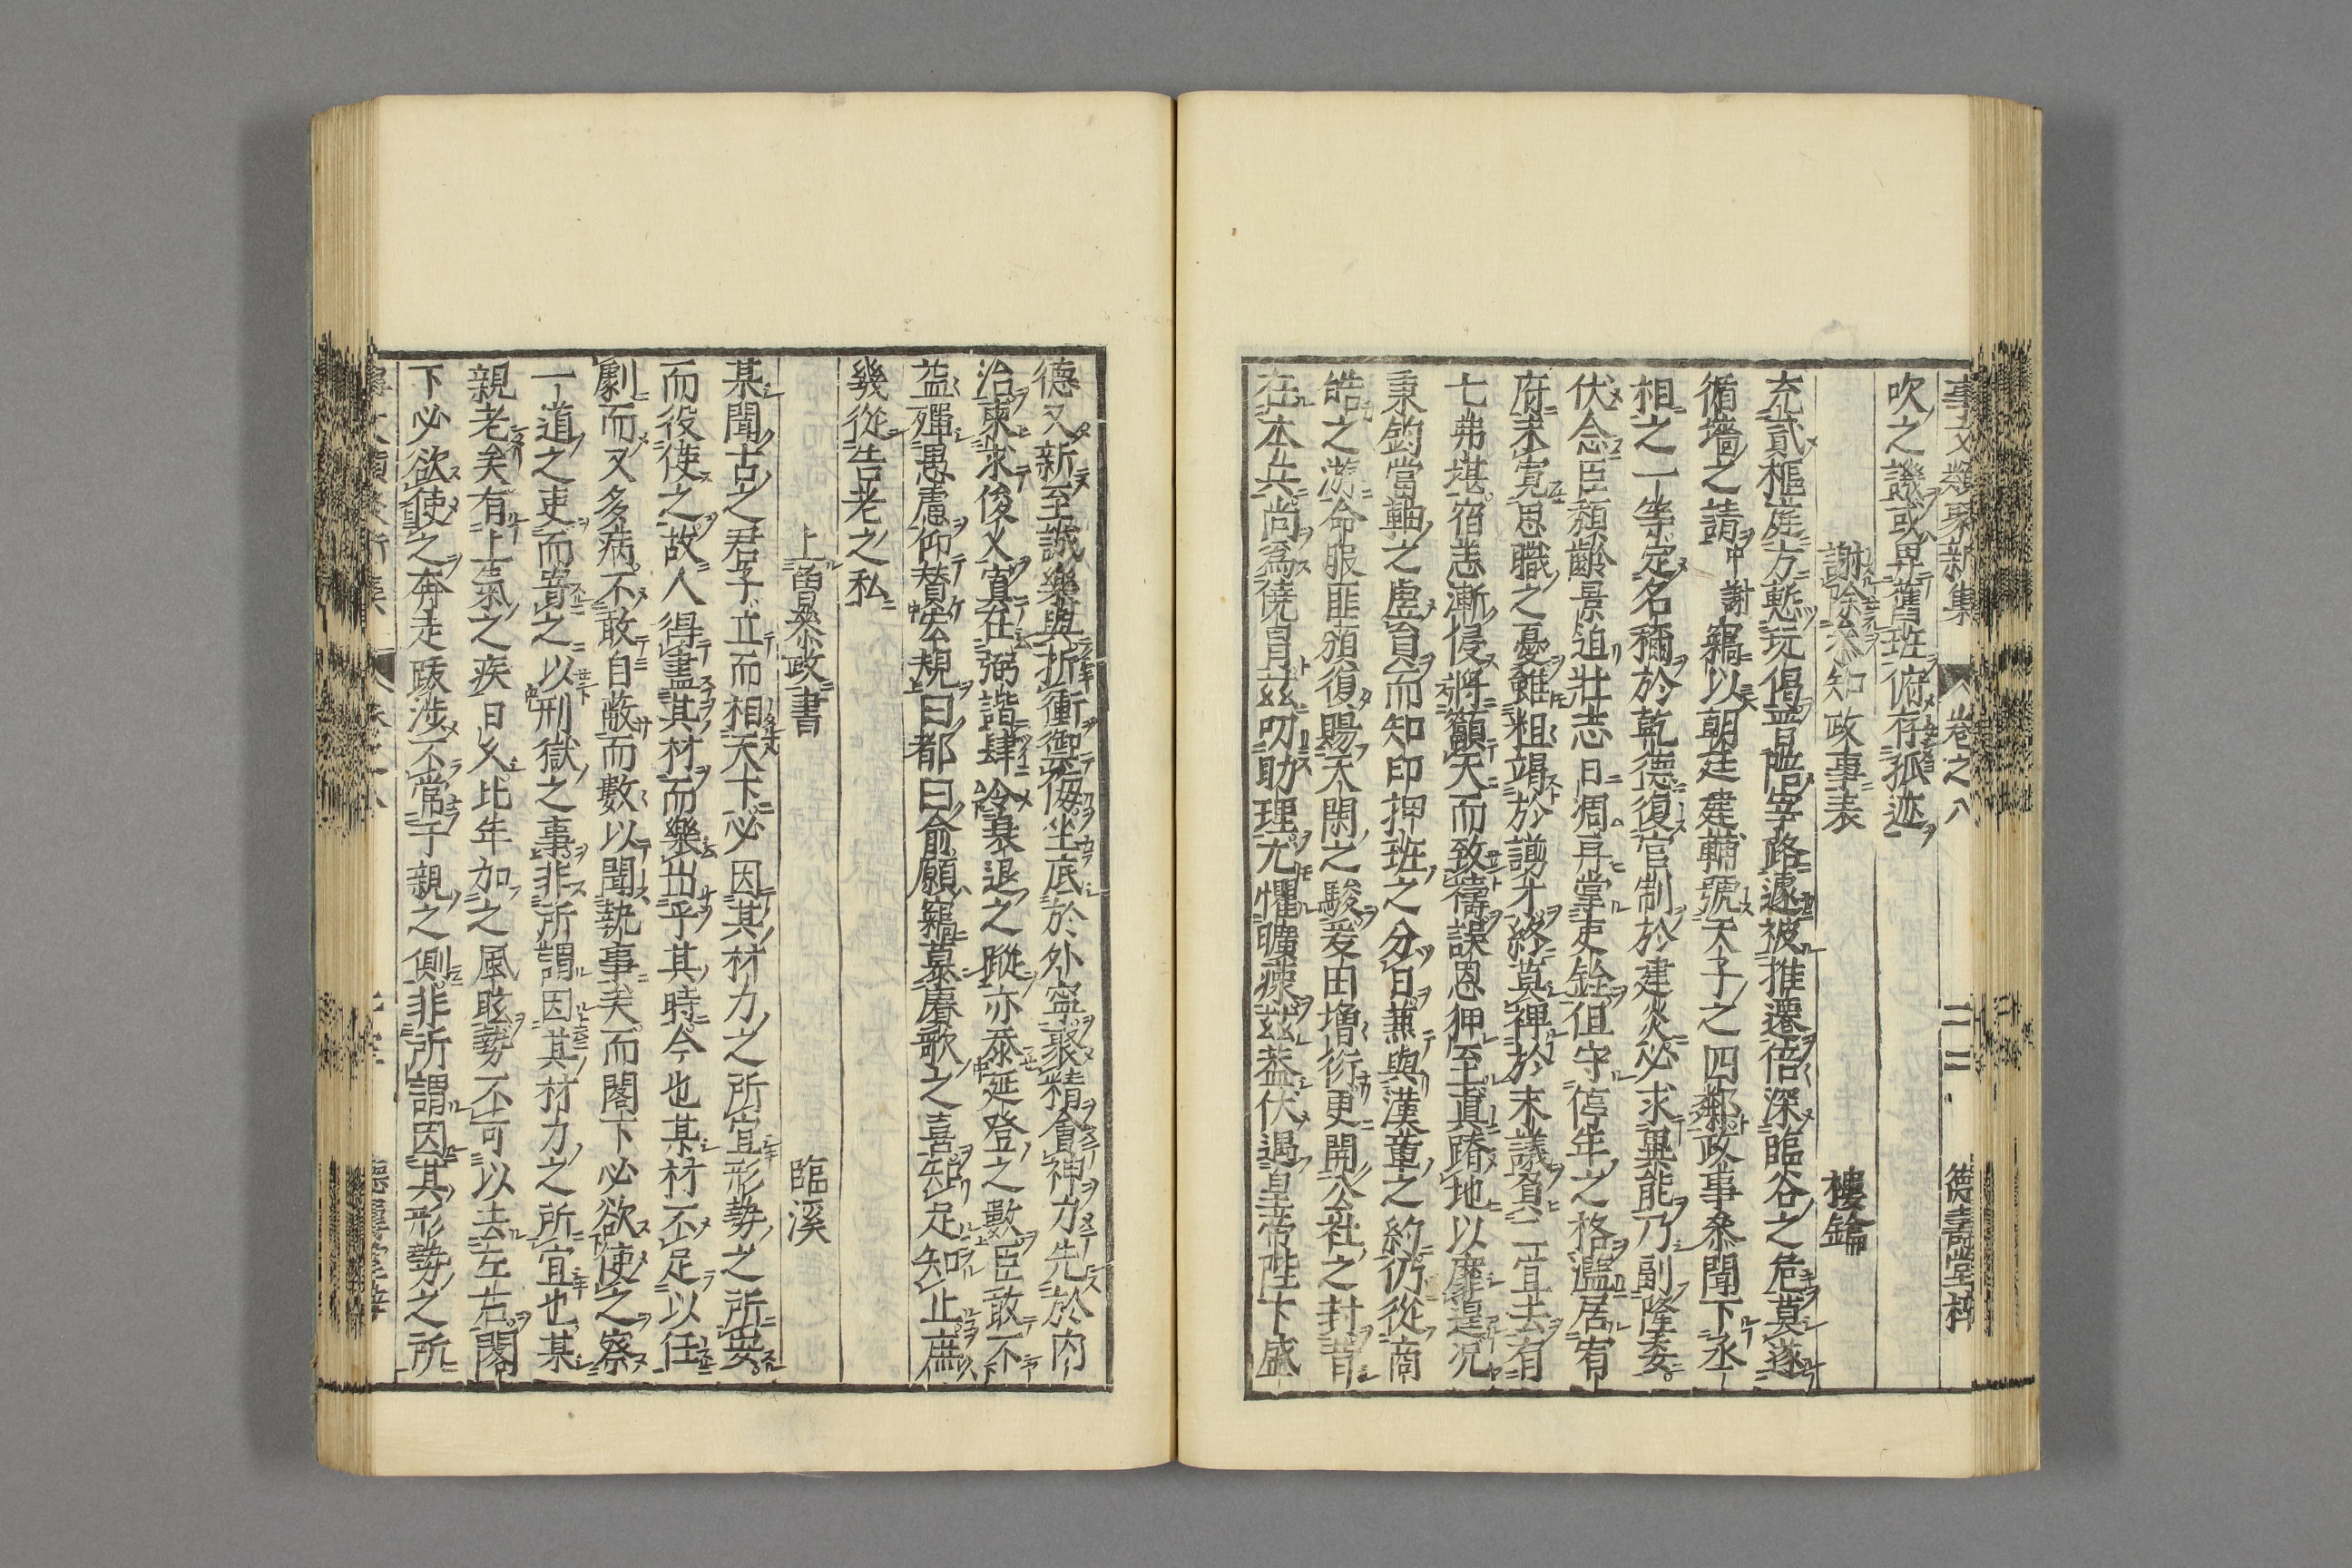 事文類聚新集 卷之八 二二 德壽堂梓
吹之譏或畀舊班俯存孤迹
謝除參知政事表 樓鑰
充貳樞庭方慙玩愒晉陪宰路遽被推遷倍深臨谷之危莫遂
循墻之請中謝竊以朝廷建輔號天子之四鄰政事參聞下丞
相之一等定名稱於乾德復官制於建炎必求異能乃副隆委
伏念臣頹齡景迫壯志日凋再掌吏銓但守停年之格濫居宥
府未寬思職之憂雖粗竭於謭才終莫裨於末議貧二宜去有
七弗堪宿恙漸侵將籲天而致禱誤恩狎至眞蹐地以靡遑況
秉鈞當軸之虛員而知印押班之分日蕭與漢童之約仍從商
皓之游命服匪頒復賜天閑之駿爰田增衍更開公社之封昔
在本兵尚爲僥冒茲叨助理尤懼曠瘝茲蓋伏遇皇帝陛下盛
德又新至誠樂與折衝禦侮坐底於外寧聚精會神方先於內
治柬求俊乂寘在弼諧肆令衰退之蹤亦忝延登之數臣敢不
益殫愚慮仰贊宏規曰都曰俞願竊慕賡歌之喜知足知止庶
幾從告老之私
上曾參政書 臨溪
某聞古之君子立而相天下必因其材力之所宜形勢之所安
而役使之故人得盡其材而樂出乎其時今也某材不足以任
劇而又多病不敢自蔽而數以聞執事矣而閣下必欲使之察
一道之吏而責之以刑獄之事非所謂因其材力之所宜也某
親老矣有上氣之疾日久比年加之風眩勢不可以去左右閣
下必欲使之奔走跋涉不常乎親之側非所謂因其形勢之所